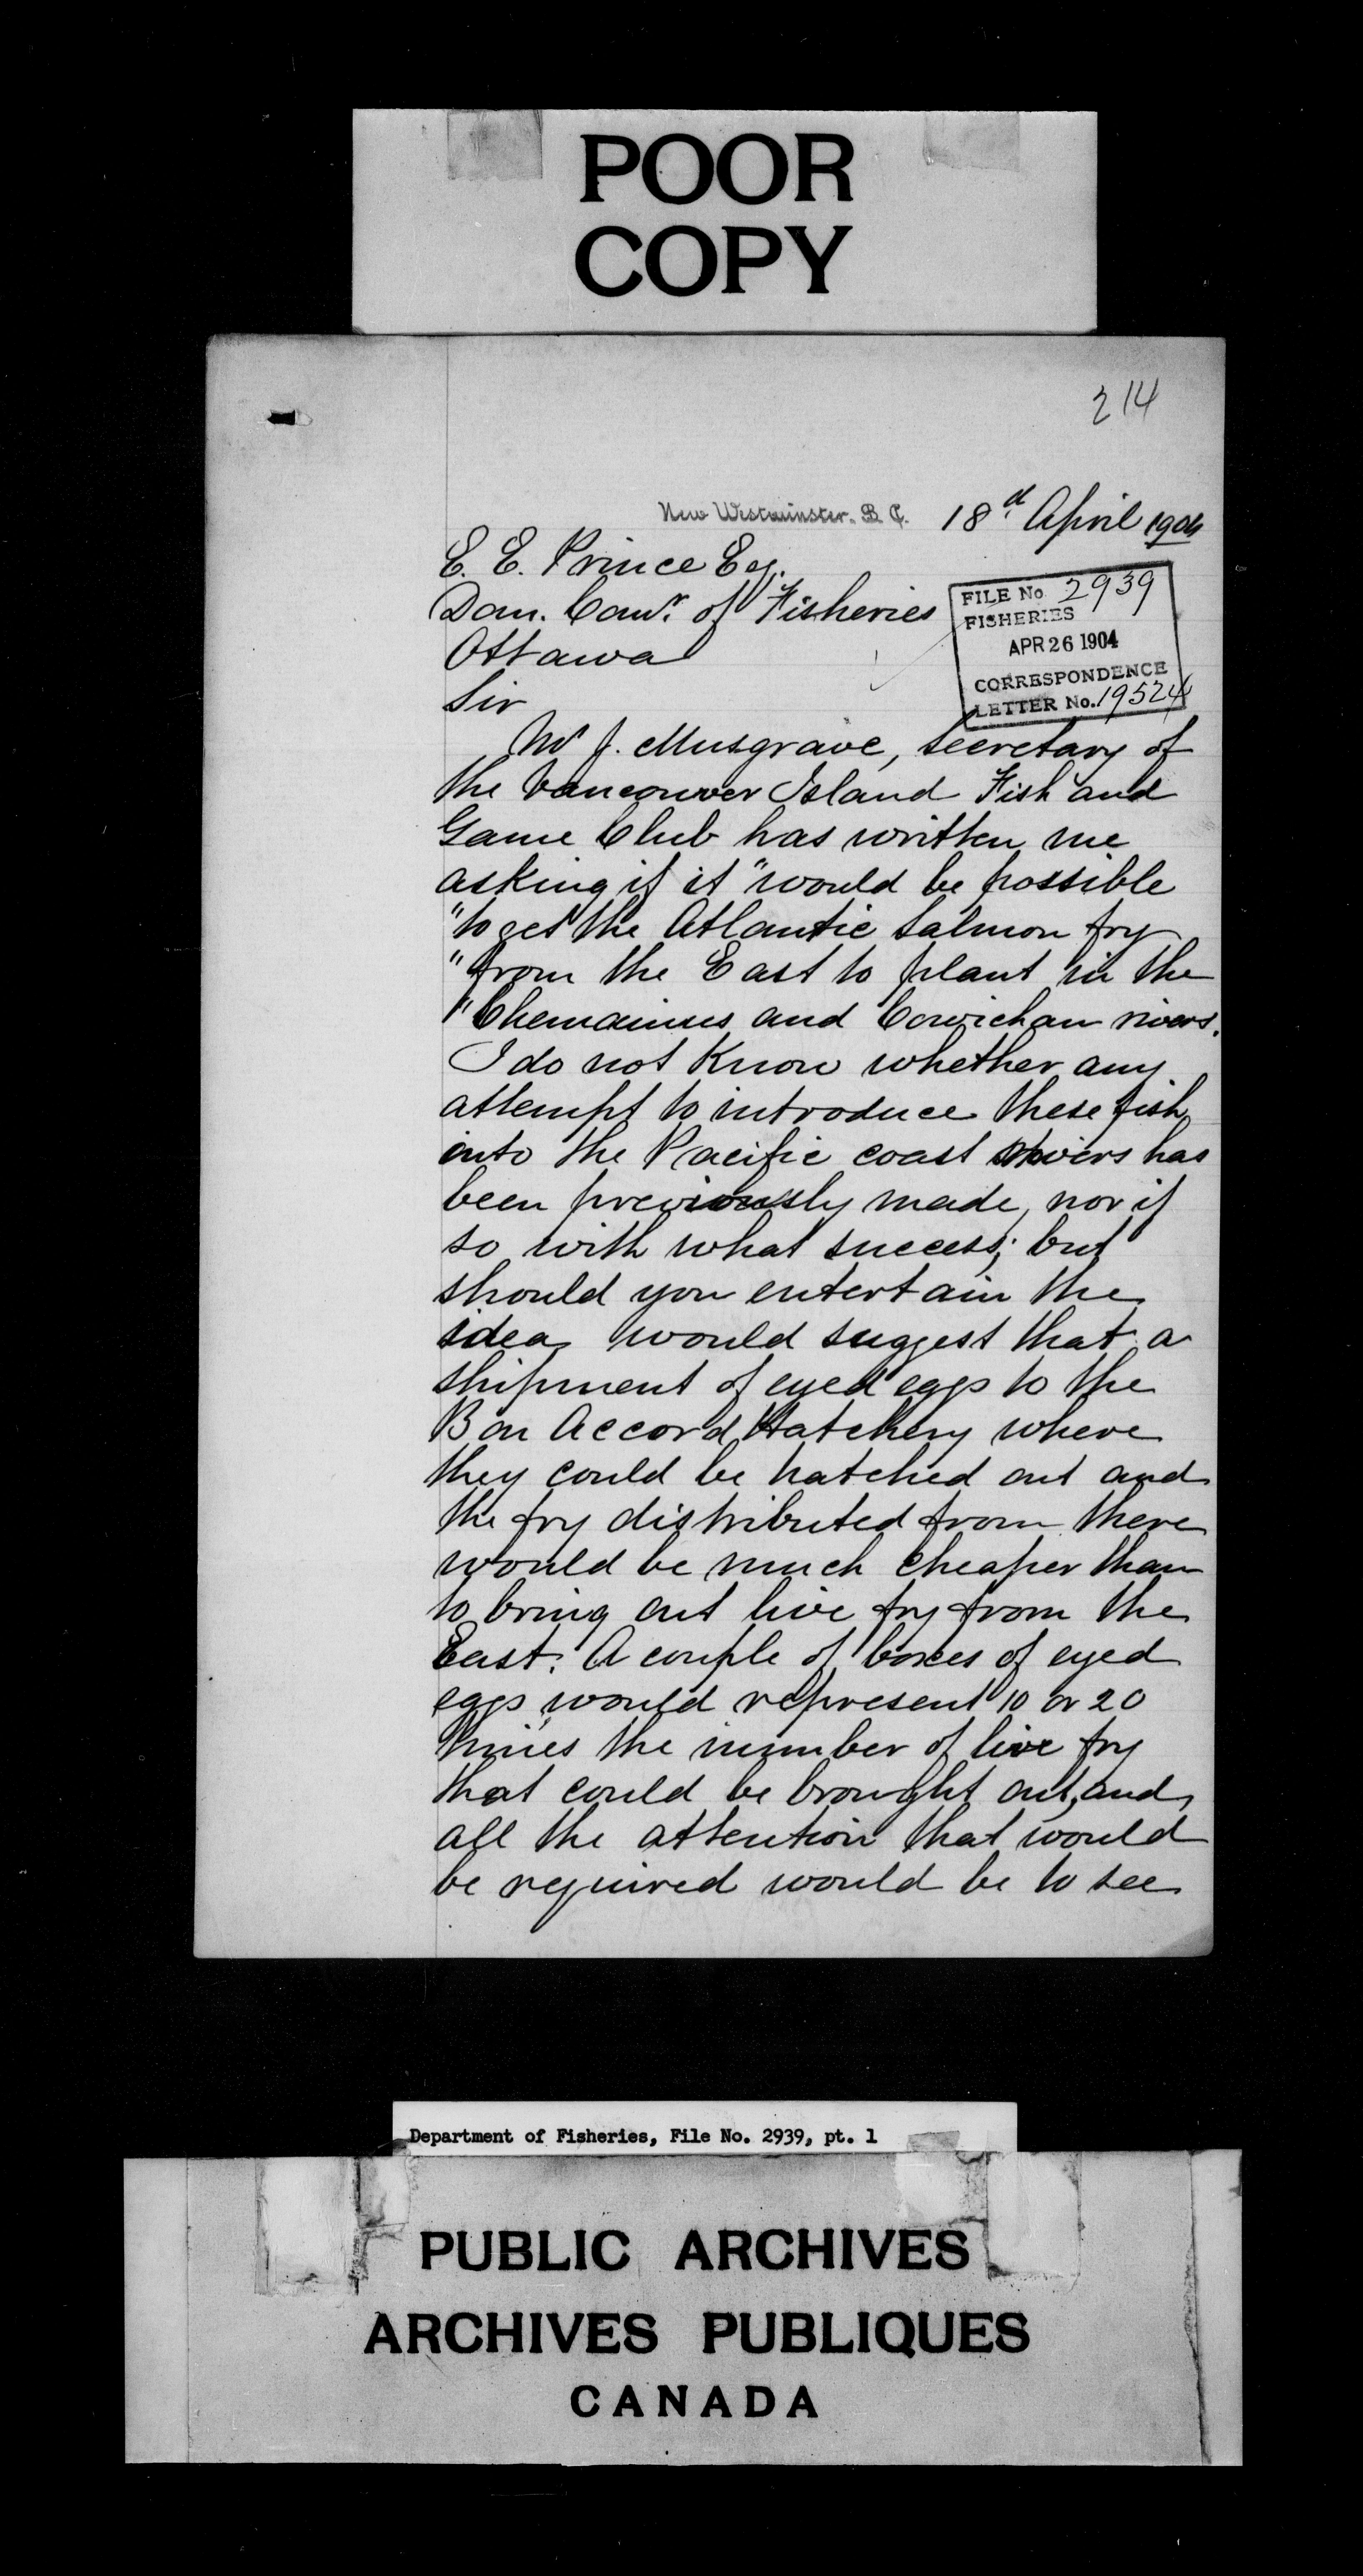 POOR
COPY
214
New Westminster. B. C. 18th April 1904
E. E. Prince Esq.
Dom. Comr. of Fisheries
Ottawa
FILE No. 2939
FISHERIES
APR 26 1904
CORRESPONDENCE
LETTER No. 19524
Sir
Mr J. Musgrave, secretary of
the Vancouver Island Fish and
Game Club has written me
asking if it "would be possible
"to get the Atlantic salmon fry
"from the East to plant in the
"Chemainus and Cowichan rivers.
I do not know whether any
attempt to introduce these fish
into the Pacific coast rivers has
been previously made, nor if
so with what success; but
should you entertain the
idea would suggest that a
shipment of eyed eggs to the
Bon Accord Hatchery where
they could be hatched out and
the fry distributed from there
would be much cheaper than
to bring out live fry from the
East. A couple of boxes of eyed
eggs would represent 10 or 20
times the number of live fry
that could be brought out, and
all the attention that would
be required would be to see
Department of Fisheries, File No. 2939, pt. 1
PUBLIC ARCHIVES
ARCHIVES PUBLIQUES
CANADA